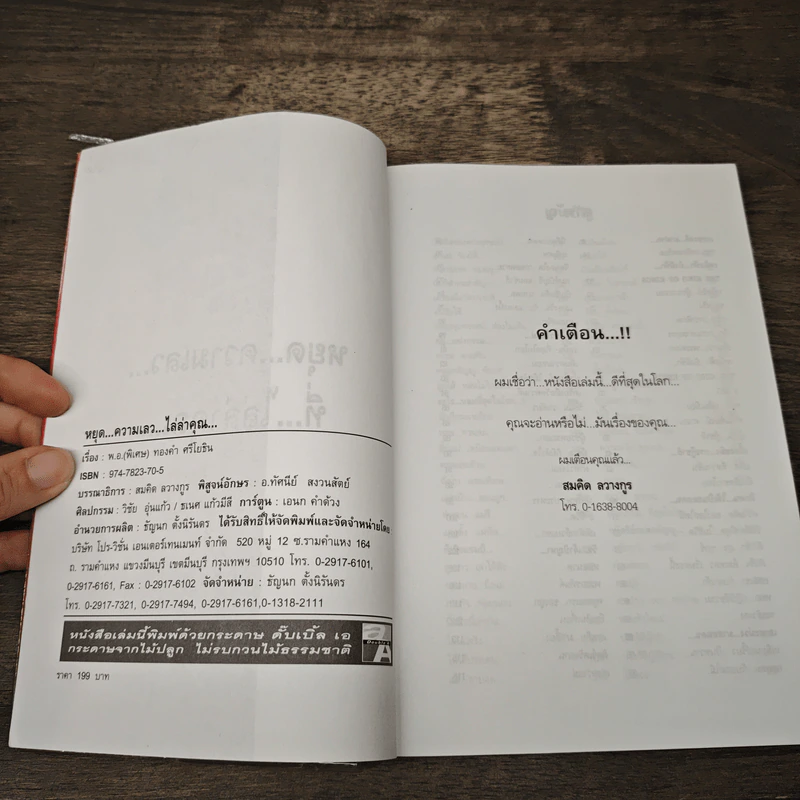 หยุด...ความเลว...ไล่ล่าคุณ...
เรื่อง : พ.อ.(พิเศษ) ทองคำ ศรีโยธิน
ISBN : 974-7823-70-5
บรรณาธิการ : สมคิด ลวางกูร พิสูจน์อักษร : อ.ทัศนีย์ สงวนสัตย์
ศิลปกรรม : วิรัย อุ่นแก้ว / ธเนศ แก้วมีสี การ์ตูน : เอนก คำด้วง
อำนวยการผลิต : ธัญนก ตั้งนิรันดร ได้รับสิทธิ์ให้จัดพิมพ์และจัดจำหน่ายโดย
บริษัท โปร-วิชั่น เอนเตอร์เทนเมนท์ จำกัด 520 หมู่ 12 ซ.รามคำแหง 164
ถ. รามคำแหง แขวงมีนบุรี เขตมีนบุรี กรุงเทพฯ 10510 โทร. 0-2917-6101,
0-2917-6161, Fax : 0-2917-6102 จัดจำหน่าย : ธัญนก ตั้งนิรันดร
โทร. 0-2917-7321, 0-2917-7494, 0-2917-6161,0-1318-2111
หนังสือเล่มนี้พิมพ์ด้วยกระดาษ ดั๊บเบิ้ล เอ
กระดาษจากไม้ปลูก ไม่รบกวนไม้ธรรมชาติ
ราคา 199 บาท
คำเตือน...!!
ผมเชื่อว่า...หนังสือเล่มนี้...ดีที่สุดในโลก...
คุณจะอ่านหรือไม่...มันเรื่องของคุณ...
ผมเตือนคุณแล้ว...
สมคิด ลวางกูร
โทร. 0-1638-8004